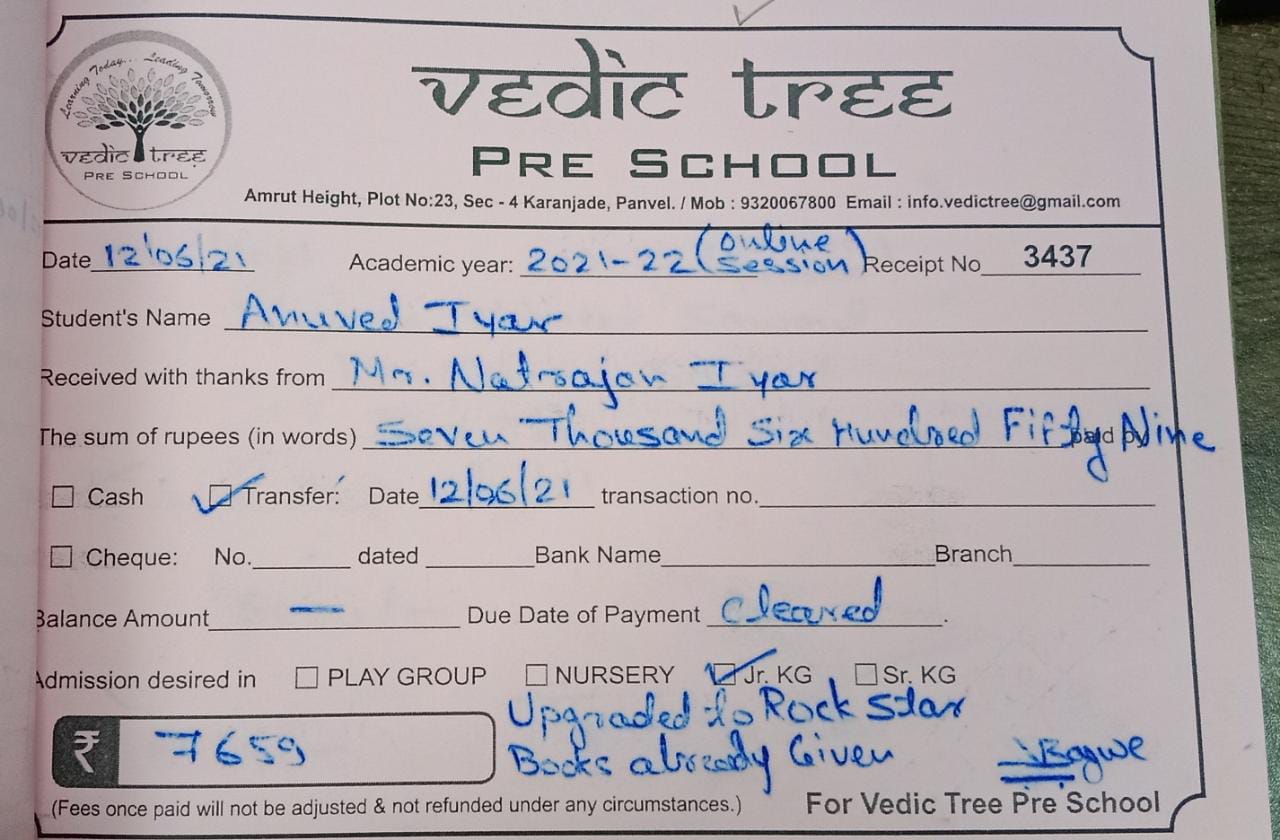 Learning Today... Leading Tomorrow
vedic tree
PRE SCHOOL
vedic tree
PRE SCHOOL
Amrut Height, Plot No:23, Sec - 4 Karanjade, Panvel. / Mob : 9320067800 Email : info.vedictree@gmail.com
Date 12/06/21 Academic year: 2021-22 (online session) Receipt No 3437
Student's Name Anuved Iyar
Received with thanks from Mr. Natrajan Iyar
The sum of rupees (in words) Seven Thousand Six Hundred Fifty Nine paid by
Cash Transfer: Date 12/06/21 transaction no.
Cheque: No. dated Bank Name Branch
Balance Amount — Due Date of Payment Cleared.
Admission desired in PLAY GROUP NURSERY Jr. KG Sr. KG
₹ 7659
Upgraded to Rock Star
Books already Given Bagwe
(Fees once paid will not be adjusted & not refunded under any circumstances.) For Vedic Tree Pre School